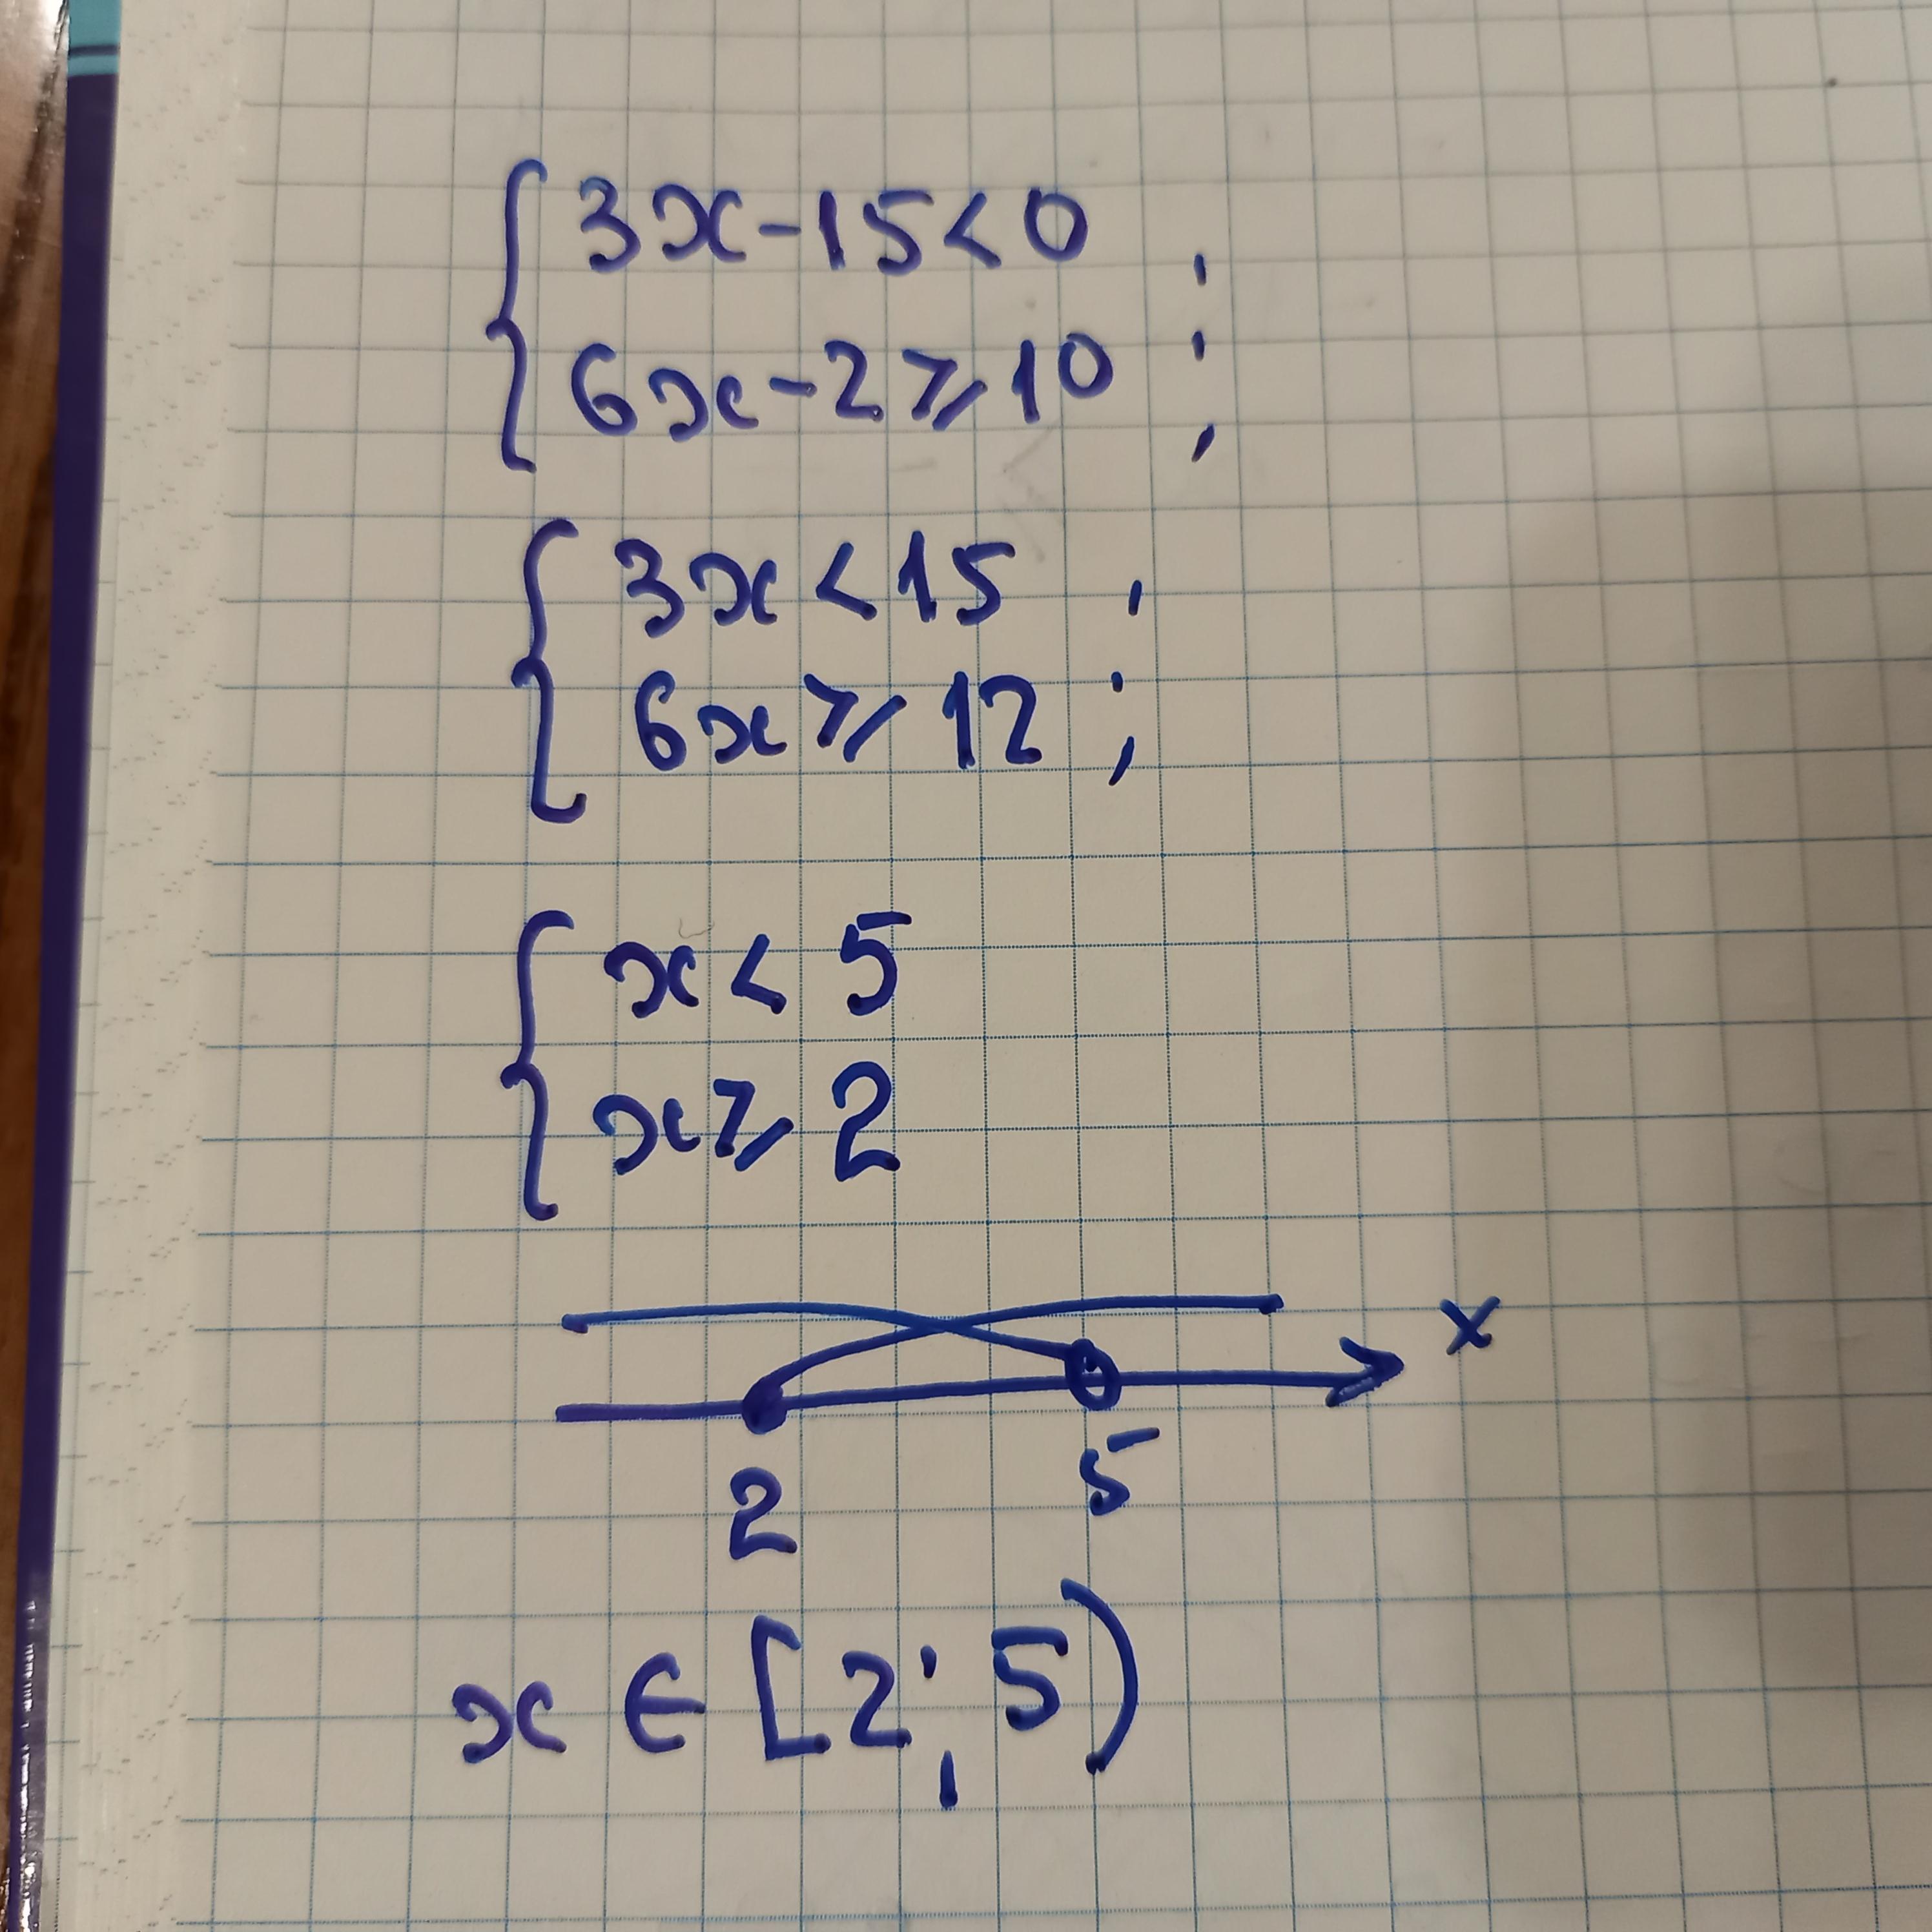 { 3x-15<0 ,
6x-2⩾10 ;
{ 3x<15 ,
6x⩾12 ;
{ x<5
x⩾2
x
2 5
x∈[2;5)